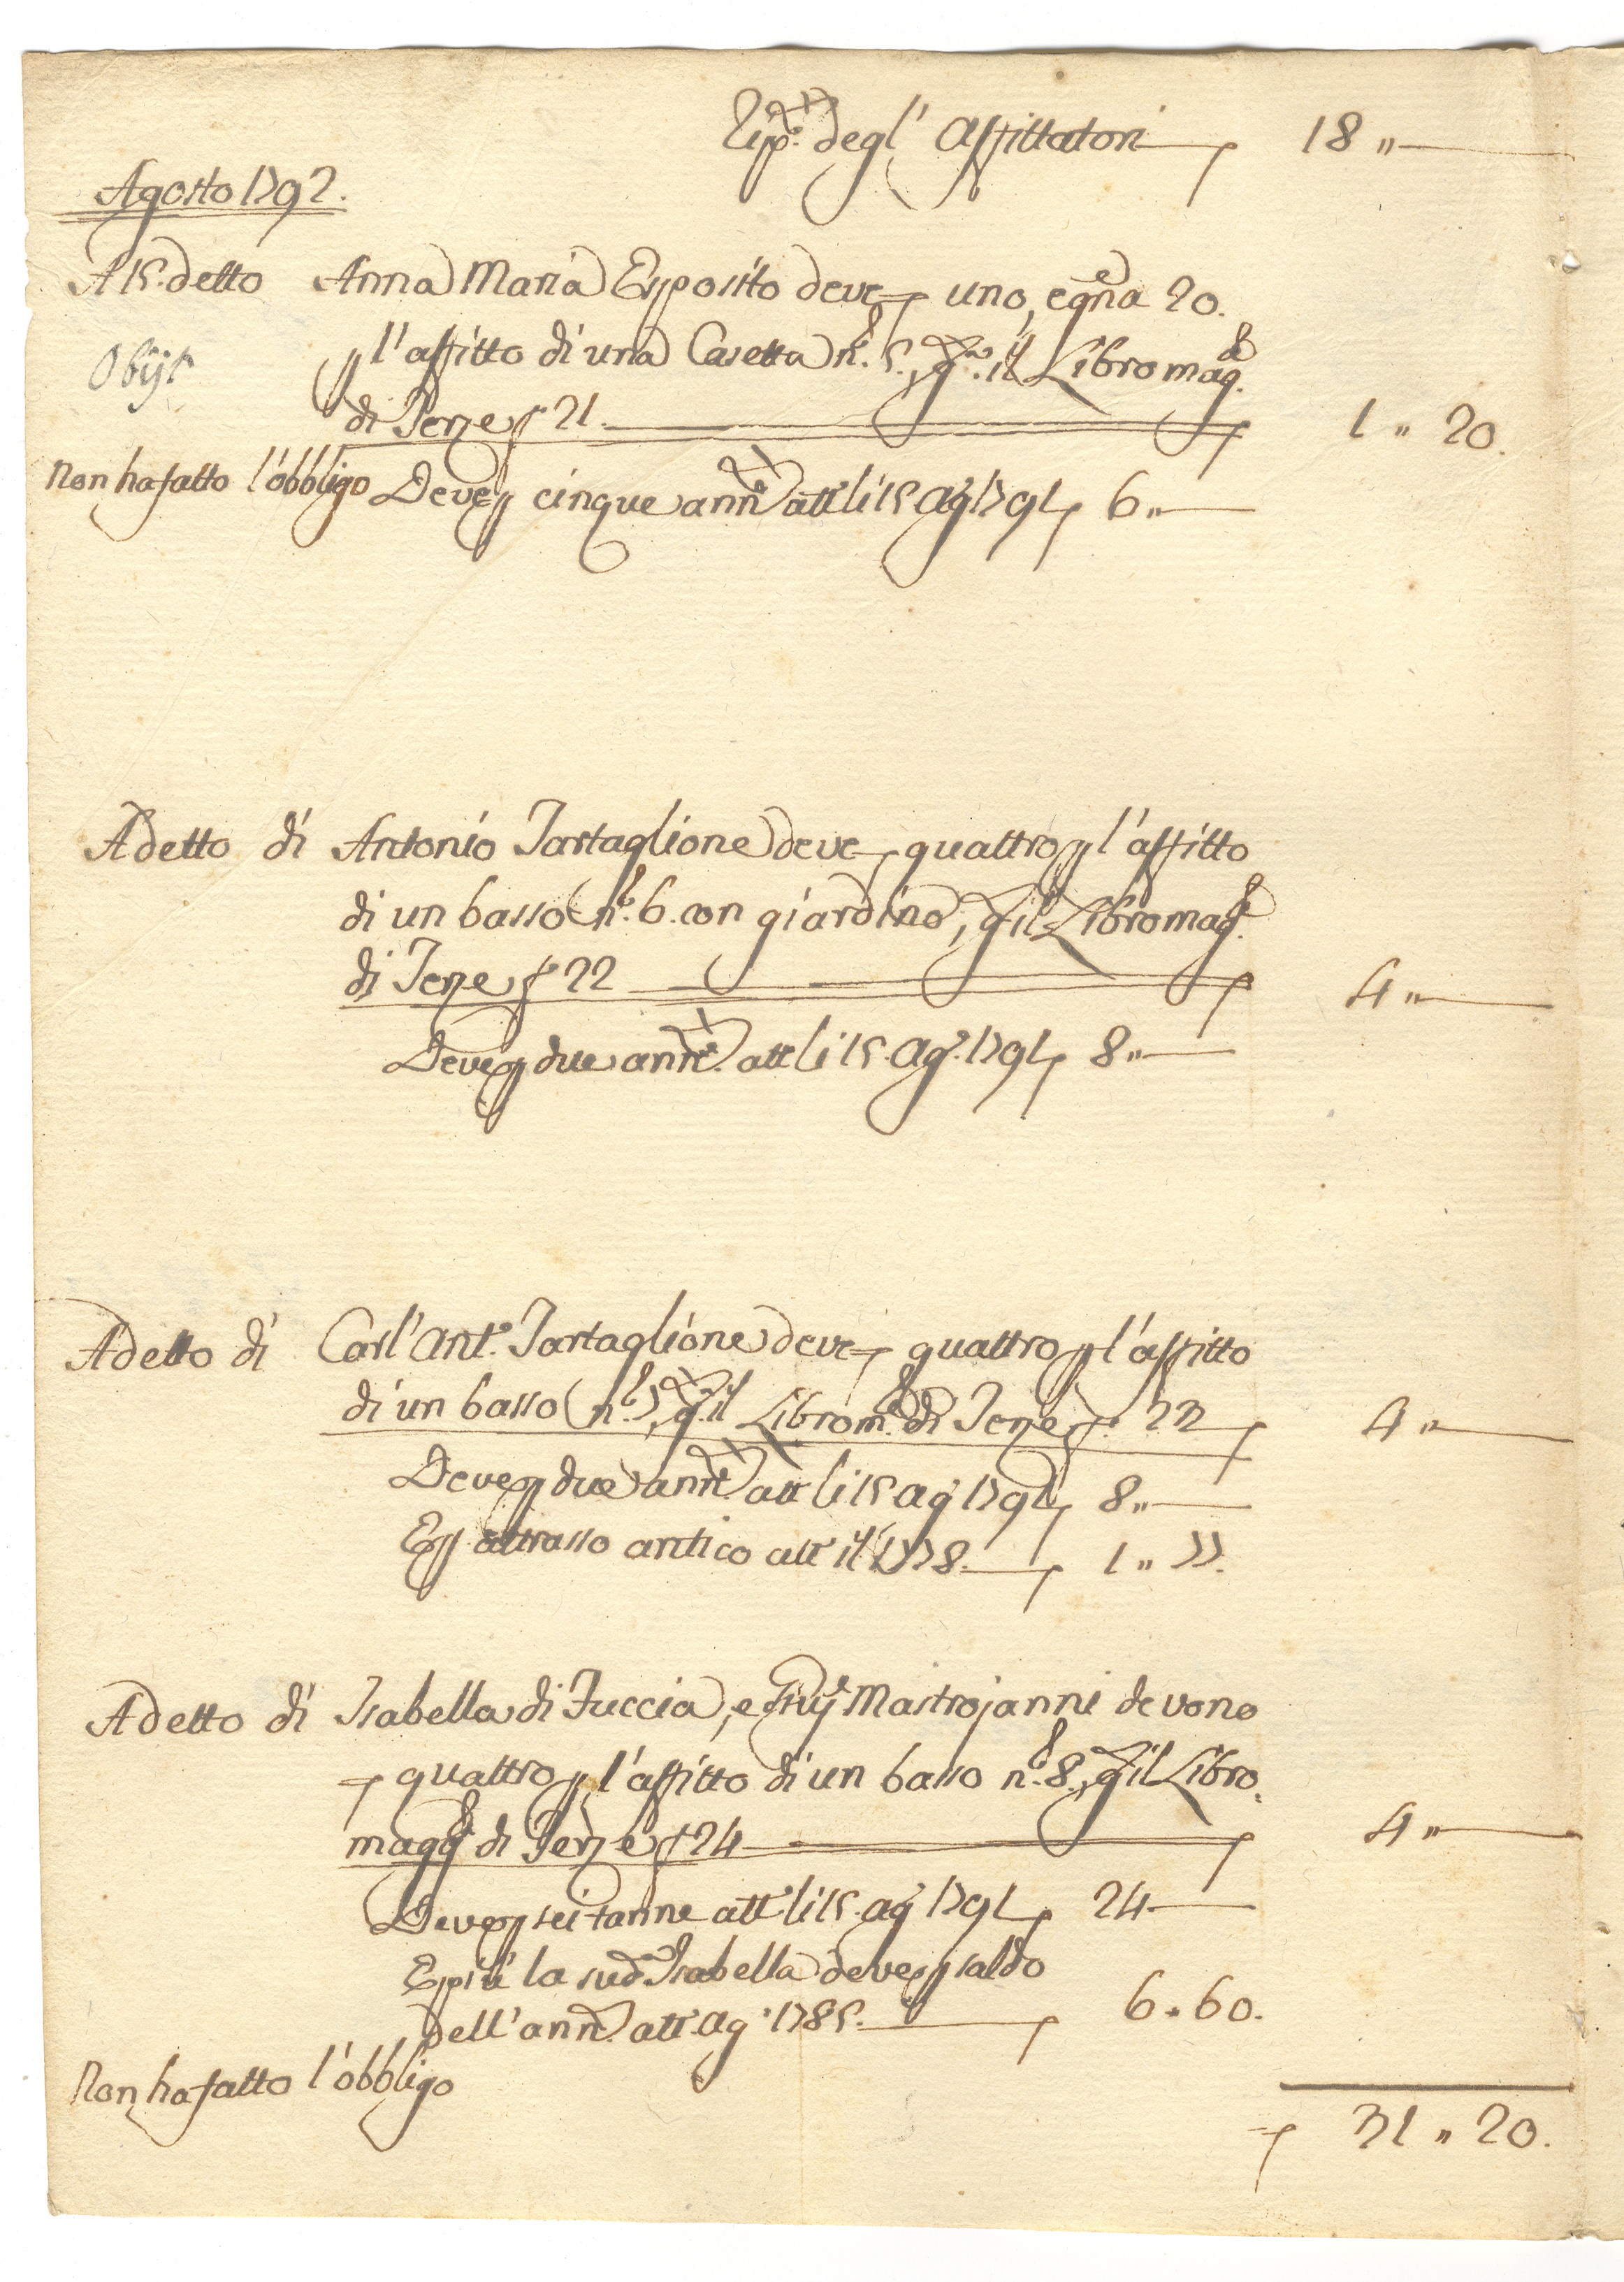 Rip.ᵉ degl' Affittatori 18 "
Agosto 1792.
A 15. detto Anna Maria Esposito deve uno, e gna 20.
Obijt l'affitto di una Casetta n.º 5., il Libro mag.
di Terze f 21. 1 " 20.
Non ha fatto l'obbligo Deve p cinque ann.ᵉ att. li 15 Ag.º 1791 6 "
A detto di Antonio Tartaglione deve quattro p l'affitto
di un basso n.º 6. con giardino, il Libro mag.
di Terze f 22 4 "
Deve p due ann.ᵉ att. li 15. Ag.º 1791 8 "
A detto di Carl'Ant.º Tartaglione deve quattro p l'affitto
di un basso n.º 7, il Libro m. di Terze f. 23 4 "
Deve p due ann.ᵉ att. li 15 Ag.º 1791 8 "
E p attrasso antico att. il 1778. 1 " 77.
A detto di Isabella di Fuccia, e Mastrojanni devono
quattro p l'affitto di un basso n.º 8., il Libro
magg. di Terze f 24 4 "
Deve p sei tanne att. li 15. Ag.º 1791 24
E più la sud.ª Isabella deve p saldo
dell'ann.ᵉ att. Ag.º 1785. 6 " 60.
Non ha fatto l'obbligo
31 " 20.